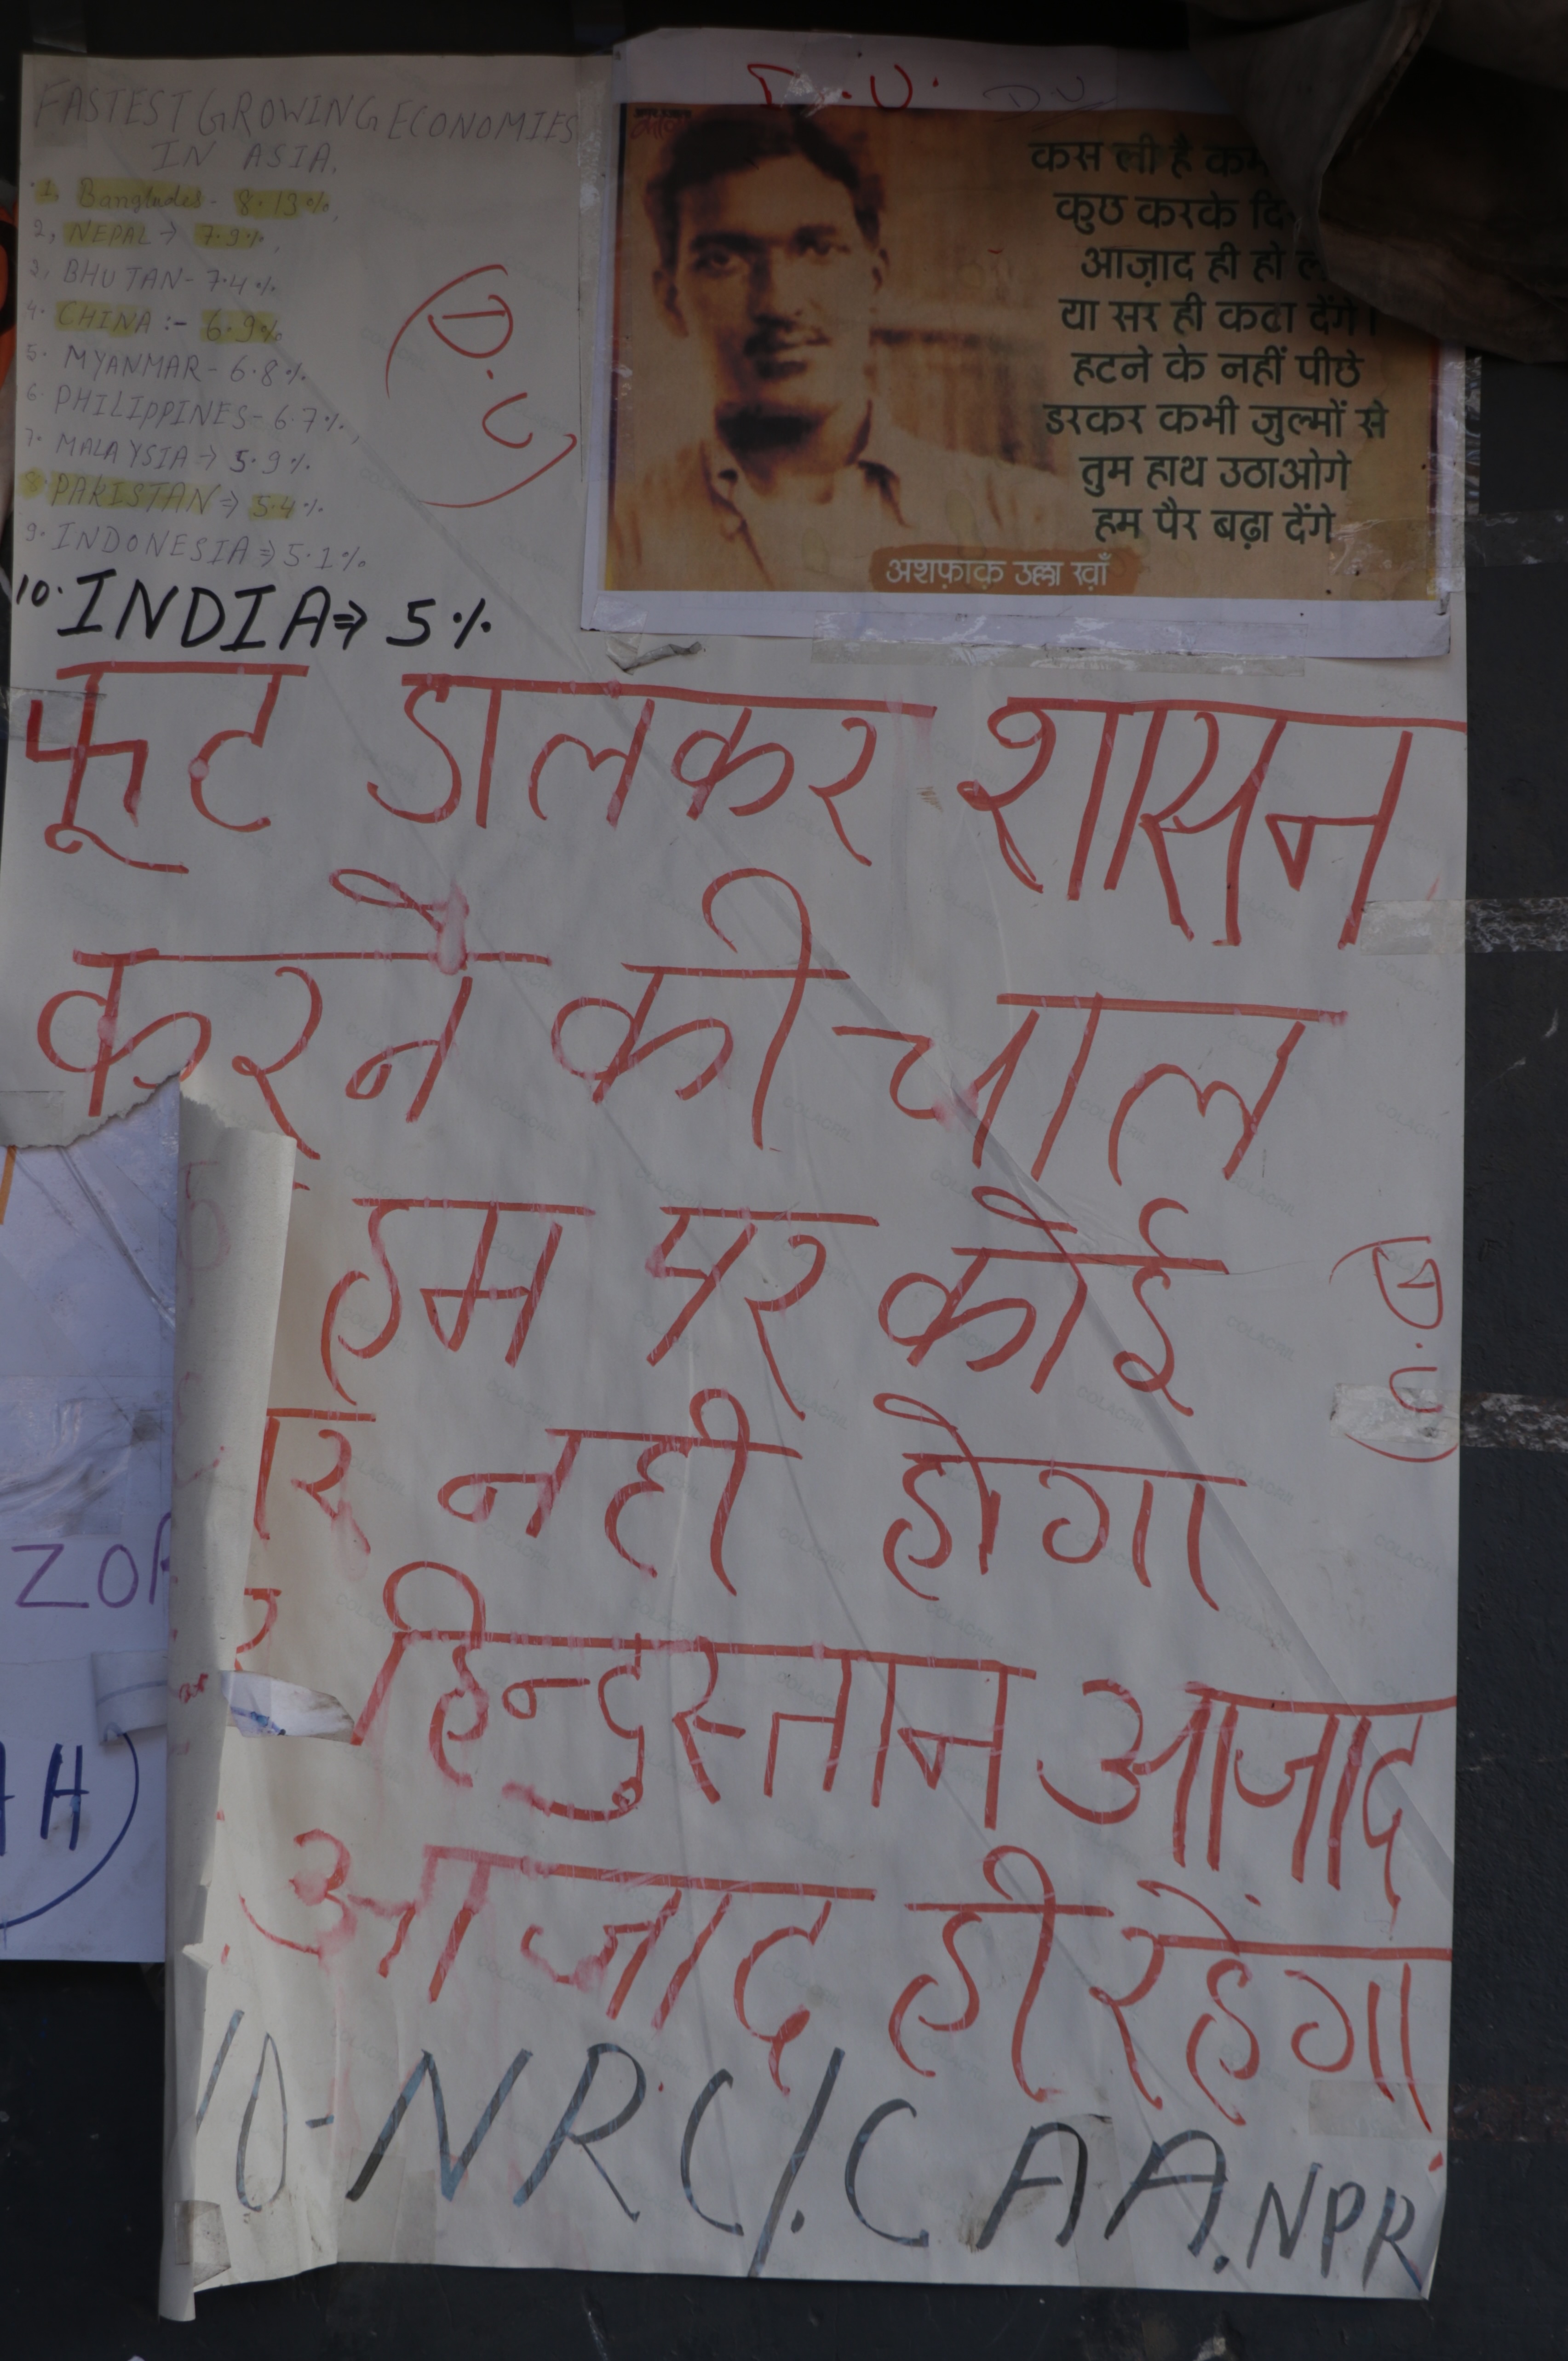 FASTEST GROWING ECONOMIES
IN ASIA.
1. Banglades - 8.13%,
2, NEPAL → 7.9%,
3, BHUTAN - 7.4%
4. CHINA :- 6.9%
5. MYANMAR - 6.8%
6. PHILIPPINES - 6.7%,
7. MALAYSIA → 5.9%
8. PAKISTAN ⇒ 5.4%
9. INDONESIA ⇒ 5.1%
10. INDIA ⇒ 5%
D.U.
D U
कस ली है
कुछ करके
आज़ाद ही हो
या सर ही कटा देंगे।
हटने के नहीं पीछे
डरकर कभी जुल्मों से
तुम हाथ उठाओगे
हम पैर बढ़ा देंगे
अशफ़ाक़ उल्ला खाँ
फूट डालकर शासन
करने की चाल
हम पर कोई
नही होगा
हिन्दुस्तान आजाद
आजाद ही रहेंगा
NRC/.CAA.NPR
D.U